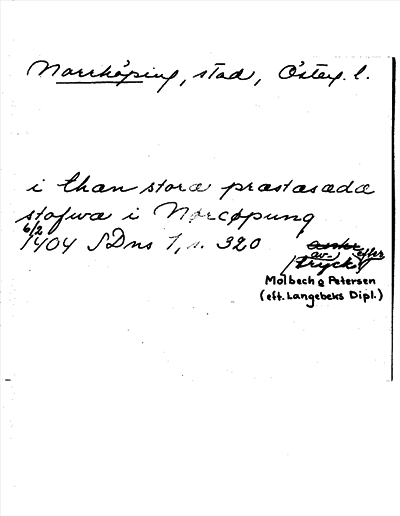 Norrköping, stad, Österg. l.
i than stora prastasada
stofwa i Norcøpung
6/2
1404 SDns 1, s. 320
av-
tryck efter
Molbech o Petersen
(eft. Langebeks Dipl.)